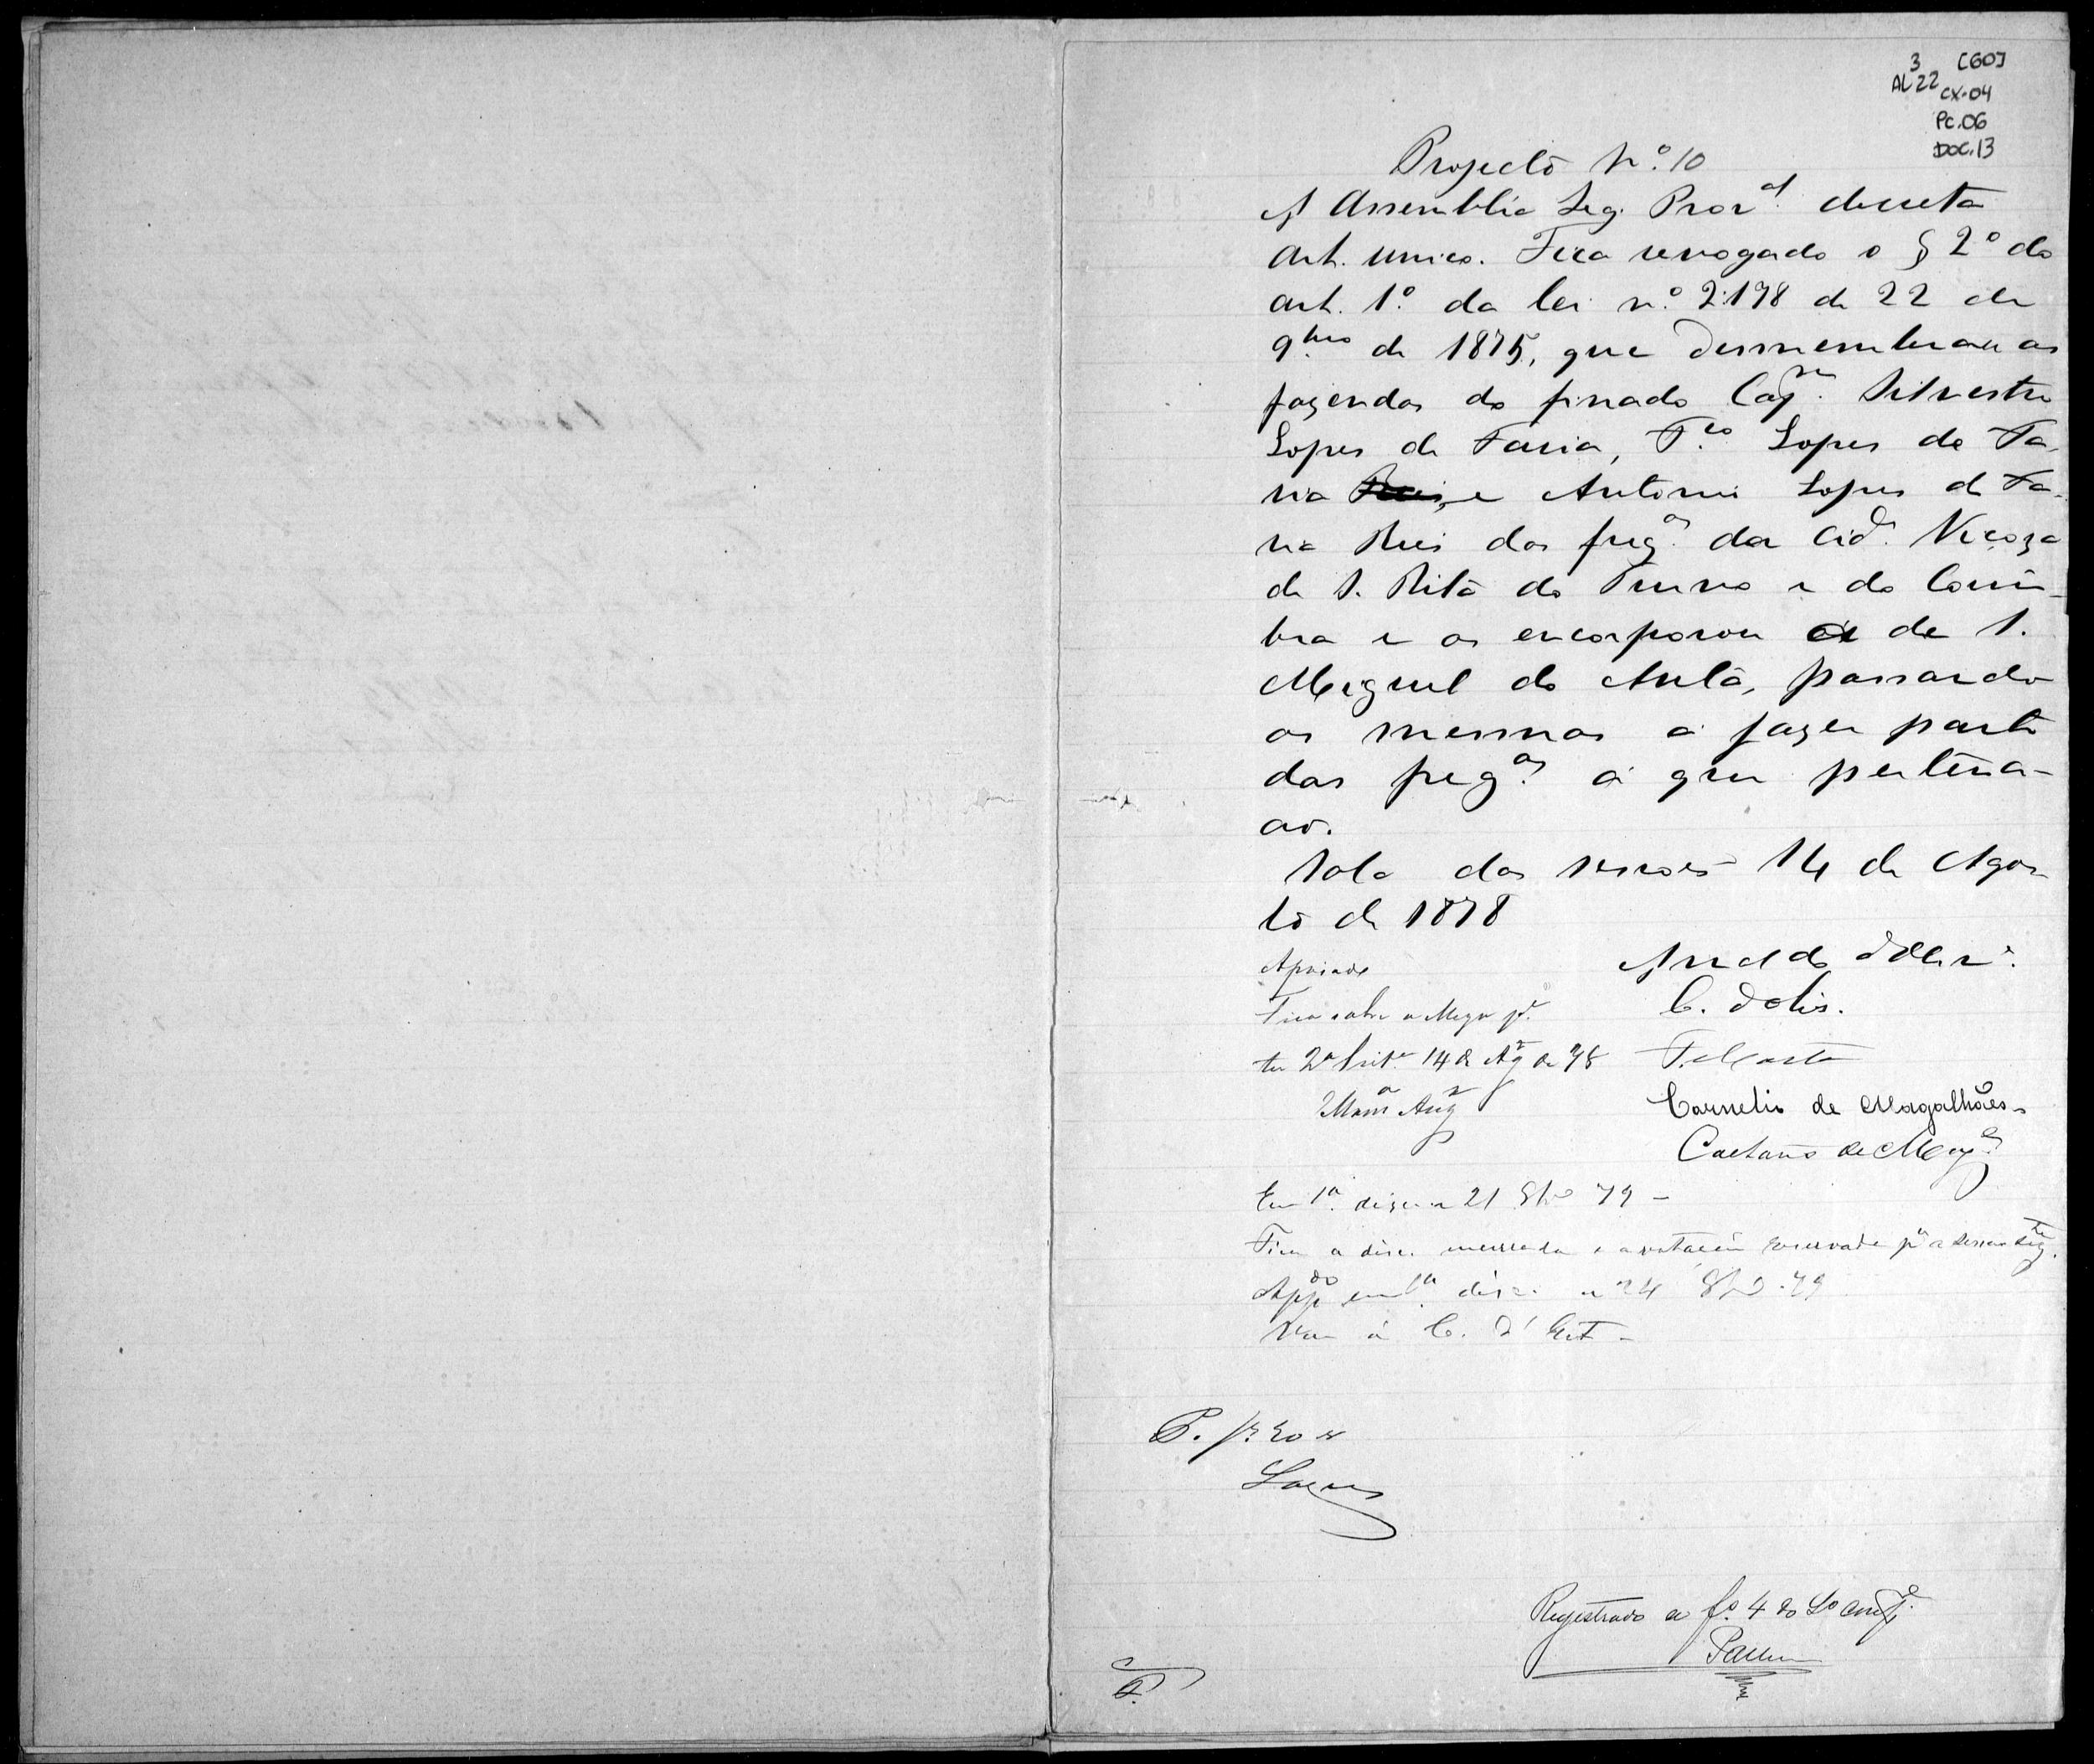 3 [60]
AL 22 CX.04
Pc.06
DOC.13
Projecto N.º 10
A Assemblia Leg. Prov.al decreta
Art. unico. Fica revogado o § 2º do
art. 1.º da lei n.º 2:178 de 22 de
9.bro de 1875, que desmembrou as
fazendas do finado Cap.m Silvestre
Lopes de Faria, F.co Lopes de Fa-
ria e Antonio Lopes de Fa-
ria Reis das freg.as da Cid.e Viçoza
de S. Rita do Turvo e do Coim-
bra e as encorporou de S.
Miguel do Anta, passando
as mesmas a fazer parte
das freg.as a que pertenci-
ão.
Sala das sessões 14 de Agos-
to de 1878
Apoiado
Fica sobre a Meza p.
14 de Ag.to de 78
C.
F.
Cornelio de Magalhães
Caetano de
Em 1.a disc. a 21 8bro 79 -
Fica a disc. encerrada e a votação reservada p.a a sessão seg.te
App.do em 1.a disc. a 24 8bro 79
Vae á C.
Registrado a f.º 4 do L.º